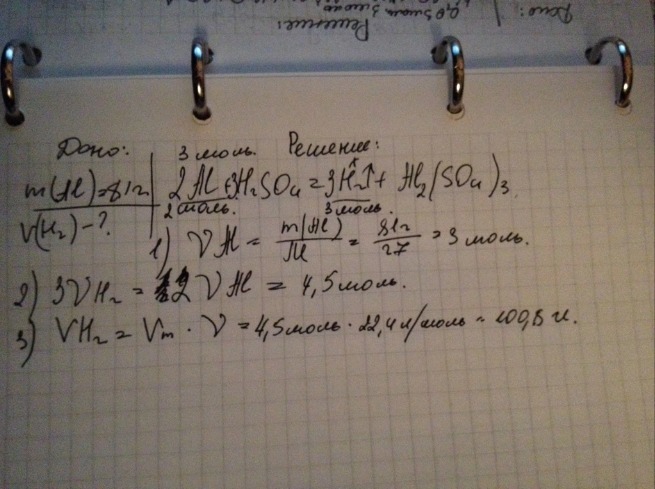 Дано:
Решение:
Дано: 3 моль. Решение:
m(Al)=81г 2Al+3H₂SO₄=3H₂↑+Al₂(SO₄)₃
V(H₂)-? 2 моль. 3 моль.
1) νAl = m(Al)/M = 81г/27 = 3 моль.
2) 3νH₂ = 2νAl = 4,5 моль.
3) VH₂ = Vm · ν = 4,5 моль · 22,4 л/моль = 100,8 л.